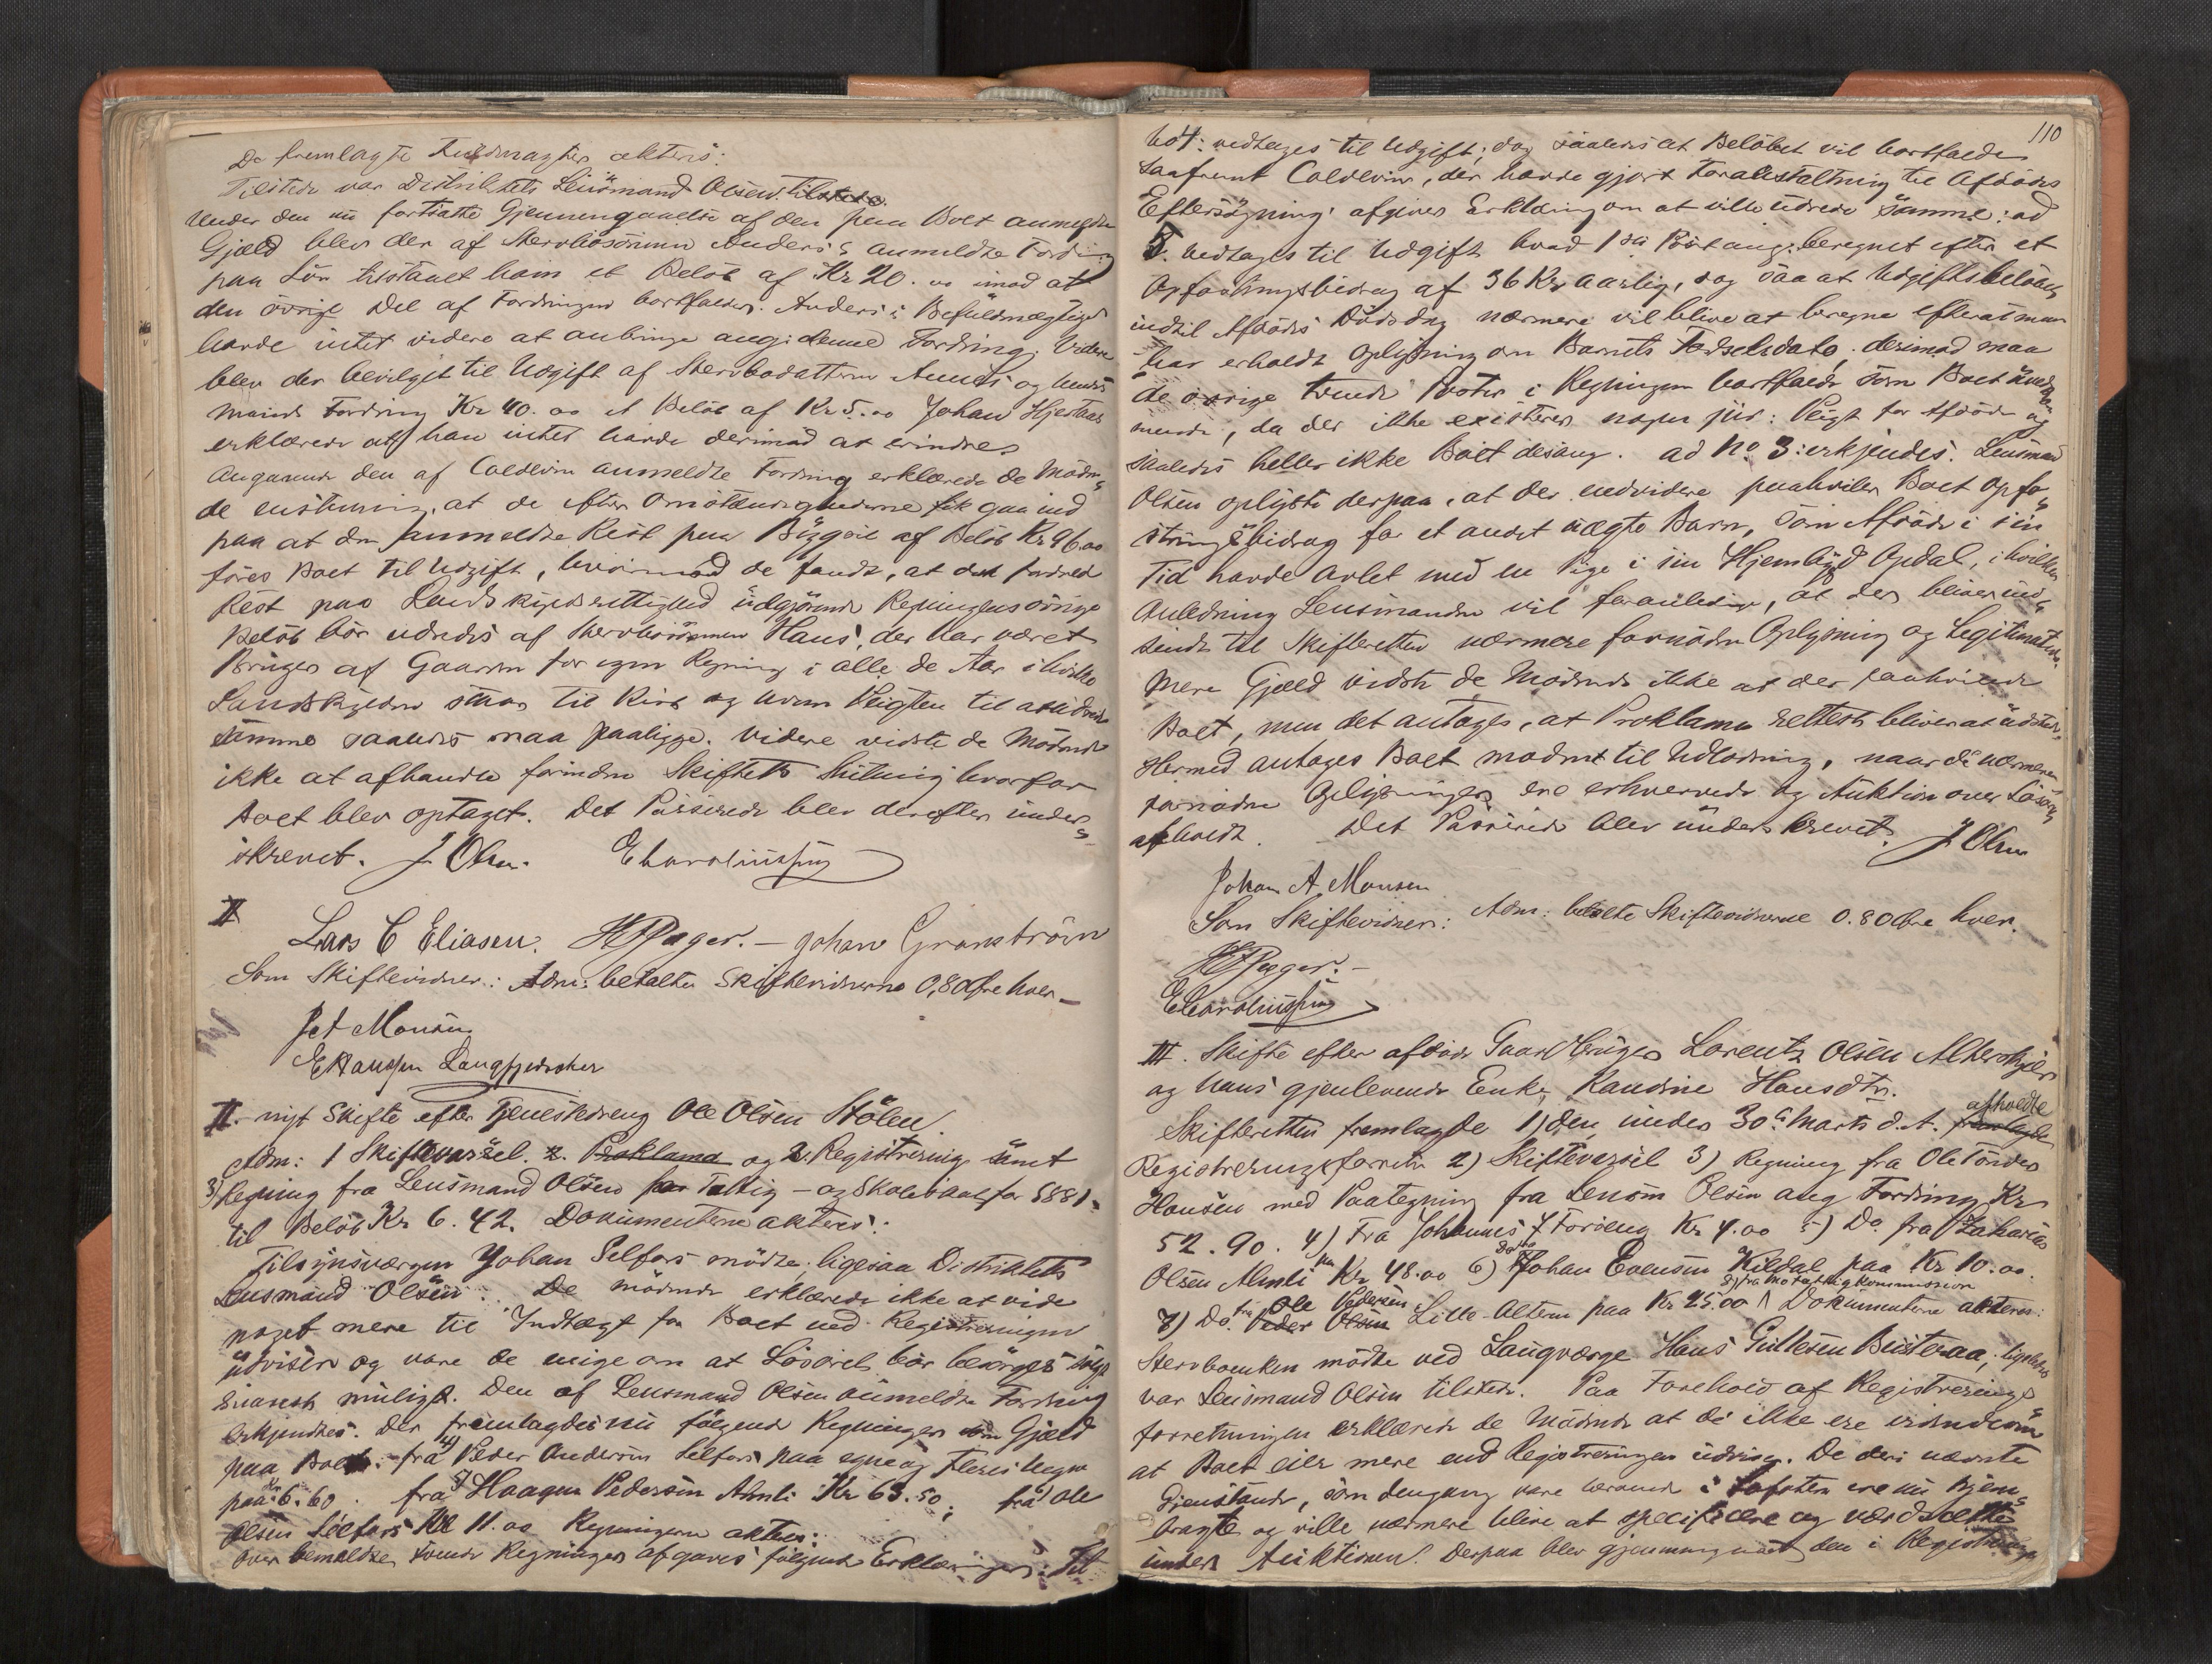 De fremlagte Fuldmagter akteris:
Tilstede var Distriktets Lensmand Olsen. Tilstede
Under den nu fortsatte Gjennemgaaelse af den paa Boet anmeldte
Gjæld blev der af Stervbosønnen Anders's anmeldte Fordring
paa Løn tilstaaet ham et Beløb af Kr 20.00 imod at
den øvrige Del af Fordringen bortfalder. Anders's Befuldmægtiget
havde intet videre at anbringe ang: denne Fordring. Videre
blev der bevilget til Udgift af Stervbodatteren Annes og hendes
Mands Fordring Kr 40.00 et Beløb af Kr 5.00 Johan Hjertaas
erklærede at han intet havde derimod at erindre.
Angaaende den af Coldevin anmeldte Fordring erklærede de Mødende
enstemmig, at de efter Omstændighederne fik gaa ind
paa at den anmeldte Rest paa Bygsel af Beløb Kr 96.00
føres Boet til Udgift, hvorimod de fandt, at den fordrede
Rest paa Landskyldrettighed udgjørende Regningens øvrige
Beløb bør udredes af Stervbosønnen Hans, der har været
Bruger af Gaarden for egen Regning i alle de Aar i hvilke
Landskylden staar til Rest og hvem Pligten til at udrede
samme saaledes maa paaligge. Videre vidste de Mødende
ikke at afhandle forinden Skiftets Slutning hvorfor
Boet blev optaget. Det Passerede blev derefter under-
skrevet. J Olsen. E Carolinssen
II
Lars C Eliasen. H P Jager. — Johan Granström
Som Skiftevidner: Adm: betalte Skiftevidnerne 0,80 Øre hver —
Pet Monsen
E Hanssen Langfjedroker
II. nyt Skifte efter Tjenestedreng Ole Olsen Stólen.
Adm: 1 Skiftevarsel. 2. Proklama og 2. Registrering samt
3) Regning fra Lensmand Olsen for Fattig- og Skoleskat for 1881
til Beløb Kr 6.42. Dokumenterne akteris:
Tilsynsværgen Johan Selfors mødte, ligesaa Distriktets
Lensmand Olsen. De mødende erklærede ikke at vide
noget mere til Indtægt for Boet end Registreringen
udviser og vare de enige om at Løsøret bør besørges solgt
snarest muligt. Den af Lensmand Olsen anmeldte Fordring
erkjendtes. Der fremlagdes nu følgende Regninger som Gjæld
paa Boet: fra 4) Peder Andersen Selfors paa egne og Fleres Vegne
paa Kr 6.60. fra 5) Haagen Pedersen Almli Kr 63.50; fra Ole
Olsen Selfors Kr 11.00 Regningerne akteres:
Over bemeldte tvende Regninger afgaves følgende Erklæringer: Til
110
No 4: vedtages til Udgift; dog saaledes at Beløbet vil bortfalde
saafremt Coldevin, der havde gjort Foranstaltning til Afdødes
Eftersøgning afgiver Erklæring om at ville udrede samme: ad
5. vedtages til Udgift hvad 1ste Post ang: beregnet efter et
Opfostringsbidrag af 36 Kr aarlig, dog saa at Udgiftsbeløbet
indtil Afdødes Dødsdag nærmere vil blive at beregne efterat man
har erholdt Oplysning om Barnets Fødselsdato; derimod maa
de øvrige tvende Poster i Regningen bortfalde som Boet uved-
mende, da der ikke existerer nogen jur: Pligt for Afdøde og
saaledes heller ikke Boet desang. ad No 3: erkjendes. Lensmand
Olsen oplyste derpaa, at der endvidere paahviler Boet Opfo-
stringsbidrag for et andet uægte Barn, som Afdøde i sin
Tid havde avlet med en Pige i sin Hjembygd Opdal, i hvilken
Anledning Lensmanden vil foranledige, at der bliver ind-
sendt til Skifteretten nærmere fornøden Oplysning og Legitimation.
Mere Gjæld vidste de Mødende ikke at der paahvilede
Boet, men det antages, at Proklama rettest bliver at udstede.
Hermed antages Boet modent til Udlodning, naar de nærmere
fornødne Oplysninger ere erhvervede og Auktion over Løsøret
afholdt. Det Passerede blev underskrevet. J Olsen
Johan A Monsen
Som Skiftevidner: Adm: betalte Skiftevidnerne 0.80 Øre hver.
H P Jager. —
E Carolinssen
III. Skifte efter afdøde Gaardbruger Lorentz Olsen Altershyler
og hans gjenlevende Enke, Randine Hansdtr.
Skifteretten fremlagde 1) den under 30te Marts d. A. fremlagde afholdte
Registreringsforretn 2) Skiftevarsel 3) Regning fra Ole Tønder
Hansen med Paategning fra Lensm Olsen ang Fordring Kr
52.90. 4) Fra Johannes J Forseng Kr 4.00 5) Do. fra Zakarias
Olsen Almli paa Kr 48.00 6) Do fra Johan Evensen Kildal paa Kr 10.00.
7) Do. fra Peder Olsen Ole Pedersen Lille-Alteren paa Kr 25.00 8) fra Mo Fattigkommission Dokumenterne akteres:
Stervboenken mødte ved Laugværge Hans Guttesen Bústeraa, ligeledes
var Lensmand Olsen tilstede. Paa Forehold af Registrerings-
forretningen erklærede de Mødende at de ikke ere vidende om
at Boet eier mere end Registreringen udviser. De deri nævnte
Gjenstande, som dengang vare værende i Lofoten ere nu hjem-
bragte og ville nærmere blive at specificere og værdsætte
under Auktionen. Derpaa blev gjennemgaaet den i Registrerings